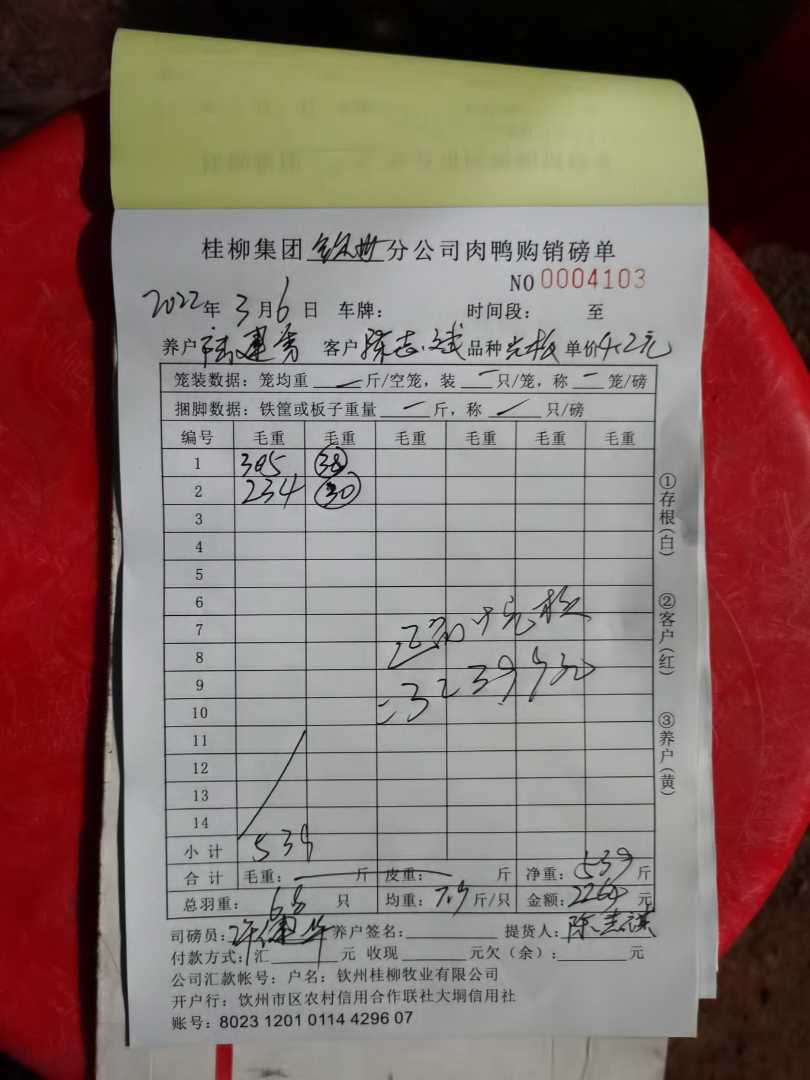 桂柳集团 钦州 分公司肉鸭购销磅单
NO 0004103
2022年 3月6日 车牌: 时间段: 至
养户 客户 陈志斌 品种 单价4.2元
笼装数据: 笼均重 一 斤/空笼, 装 一 只/笼, 称 一 笼/磅
捆脚数据: 铁筐或板子重量 一 斤, 称 一 只/磅
编号 毛重 毛重 毛重 毛重 毛重 毛重
1 305 38
2 234 30
3
4
5
6
7
8
9
10
11
12
13
14
小计 539
合计 毛重: 斤 皮重: 斤 净重: 539 斤
总羽重: 68 只 均重: 7.9 斤/只 金额: 元
司磅员: 养户签名: 提货人:
付款方式: 汇 元 收现 元欠(余): 元
公司汇款帐号: 户名: 钦州桂柳牧业有限公司
开户行: 钦州市区农村信用合作联社大垌信用社
账号: 8023 1201 0114 4296 07
①存根(白)
②客户(红)
③养户(黄)